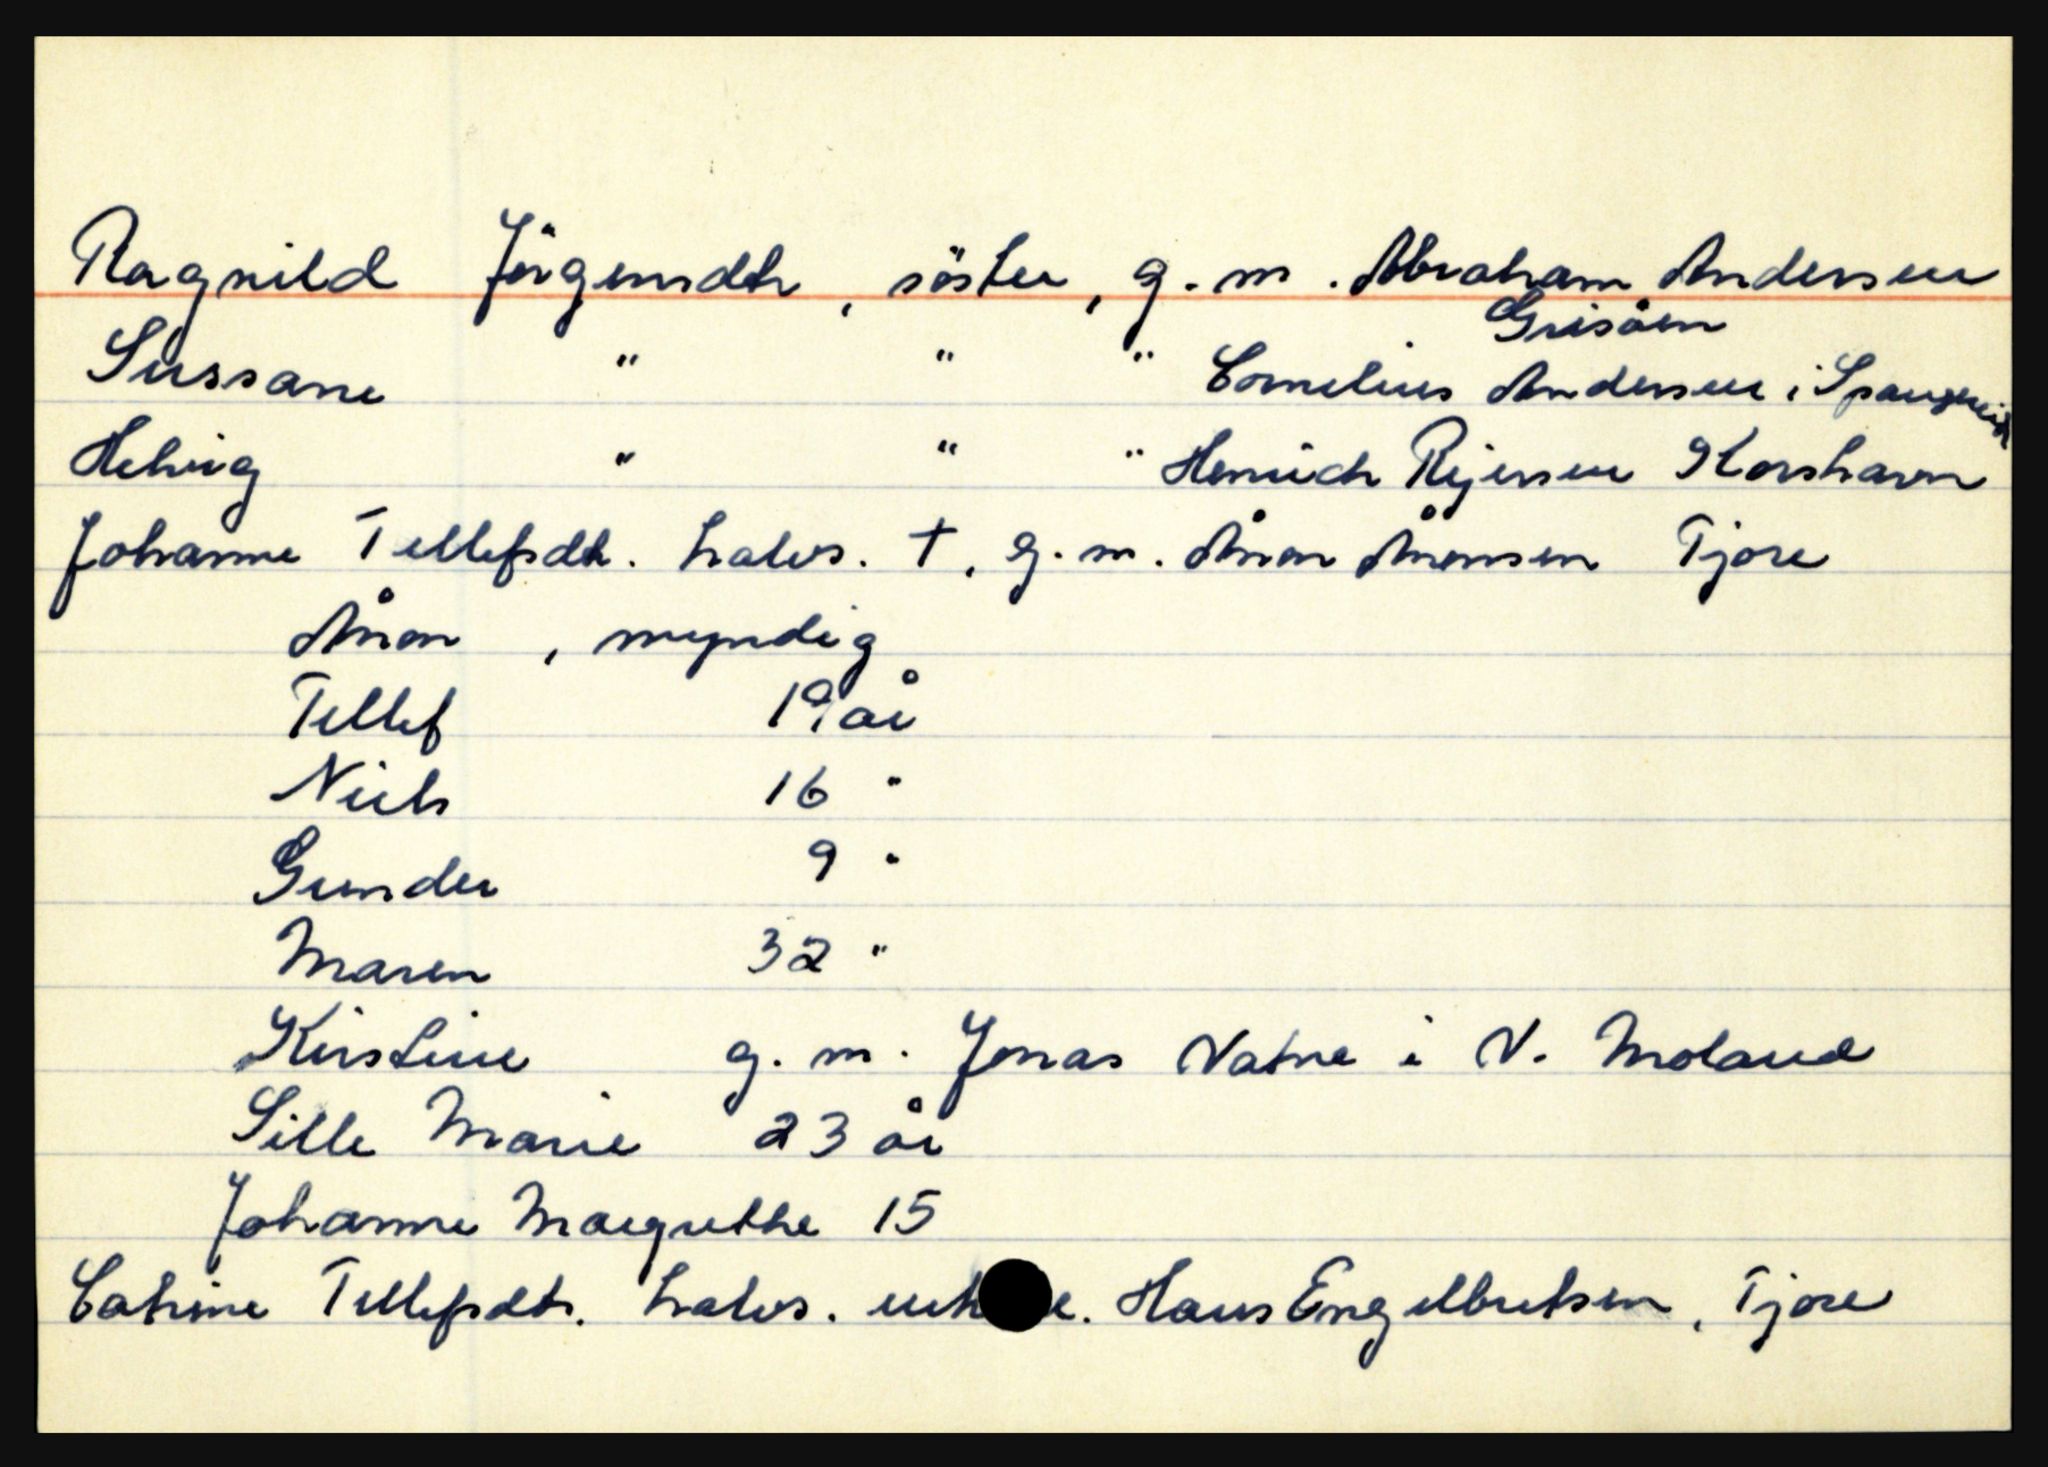 Ragnild Jörgensdtr, söster, g. m. Abraham Andersen
Grisåen
Sussane " " " Cornelius Andersen i Spangereid
Helvig " " " Henrich Rejersen Korshavn
Johanne Tellefsdtr. halvs. †, g. m. Ånon Ånonsen Tjore
Ånon, myndig
Tellef 19 år
Niels 16 "
Gunder 9 "
Maren 32 "
Kirstine g. m. Jonas Vatne i V. Moland
Sille Marie 23 år
Johanne Margrethe 15
Catrine Tellefsdtr. halvs. Hans Engelbretsen, Tjore